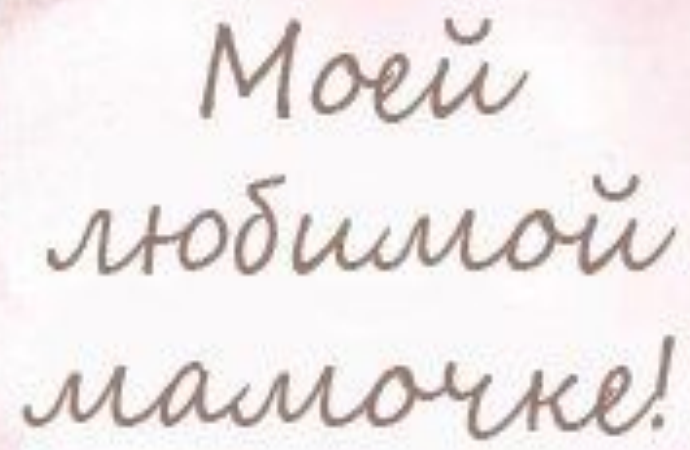 Моей
любимой
мамочке!